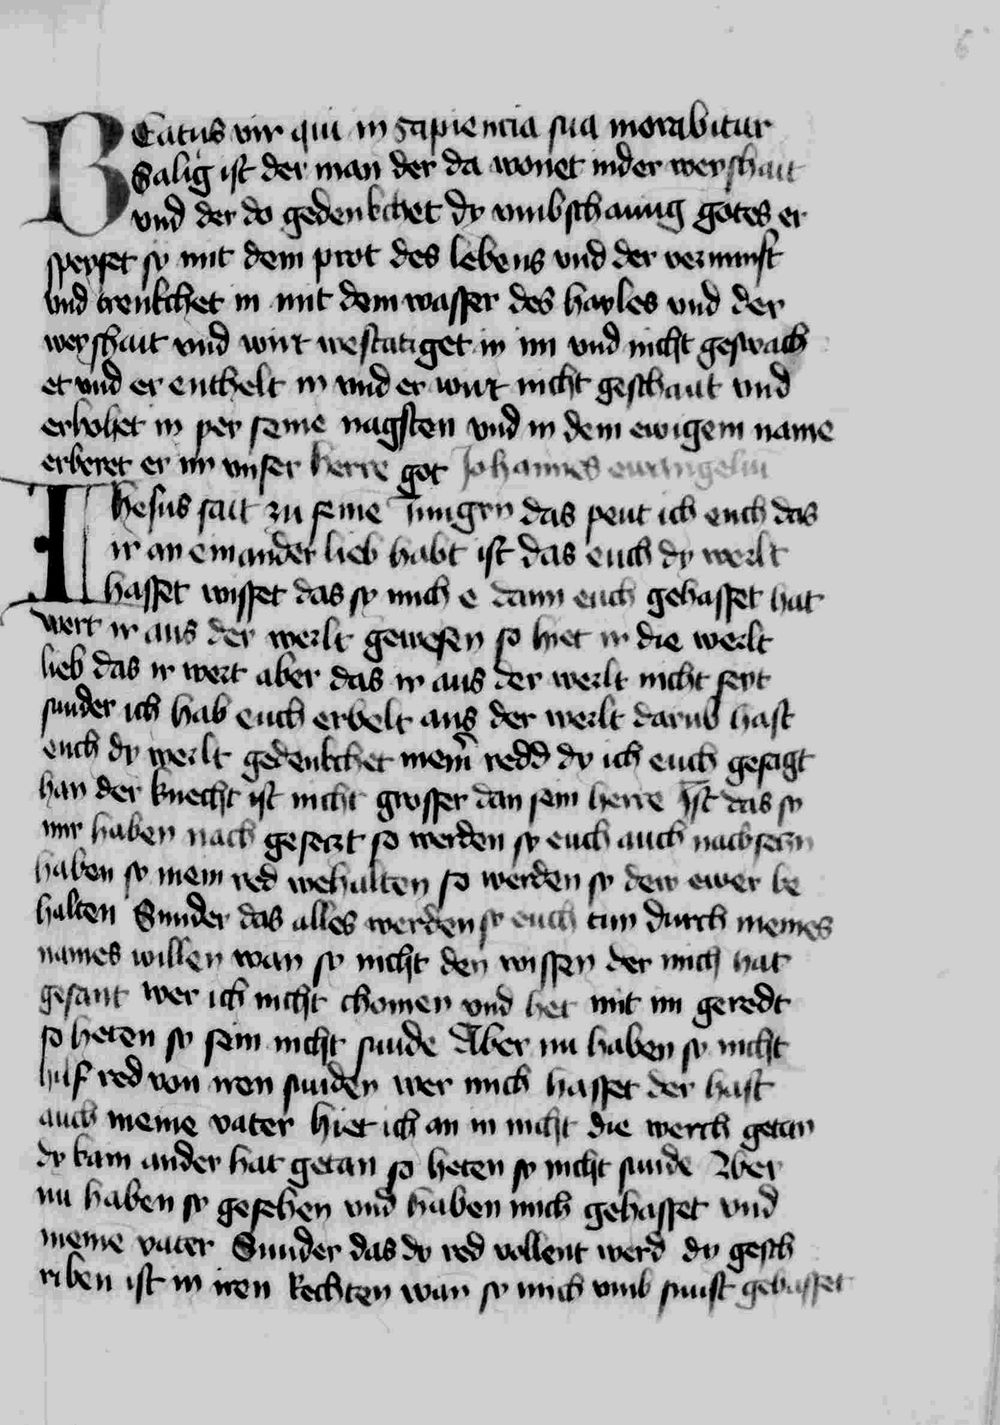 BEatus vir qui in sapiencia sua morabitur
Salig ist der man der da wonet inder weyshait
vnd der do gedenkchet dy vmbschaung gotes er
speyset sy mit dem prot des lebens vnd der vernunft
vnd trenkchet in mit dem wasser des hayles vnd der
weyshait vnd wirt westatiget in im vnd nicht geswach
et vnd er enthelt in vnd er wirt nicht geschant vnd
erhohet in per seine nagsten vnd in dem ewigem name
erberet er im vnser herre got Johannes ewangeliu
Ihesus sait zu seine Jungern das peut ich euch das
ir an einander lieb habt ist das euch dy werlt
hasset wisset das sy mich e dann euch gehasset hat
wert ir aus der werlt gewesen so hiet ir die werlt
lieb das ir wert aber das ir aus der werlt nicht seyt
sunder ich hab euch erbelt aus der werlt darub hast
euch dy werlt gedenkchet mein̄ redd dy ich euch gesagt
han der knecht ist nicht grosser dan sein herre Ist das sy
mir haben nach geseczt so werden sy euch auch nachseczn
haben sy mein red wehalten so werden sy dew ewer be
halten Sunder das alles werden sy euch tun durch meines
names willen wan sy nicht den wissen der mich hat
gesant wer ich nicht chomen vnd het mit im geredt
so heten sy sein nicht sunde Aber nu haben sy nicht
hilf red von iren sunden wer mich hasset der hast
auch meine vater hiet ich an in nicht die werch getan
dy kain ander hat getan so heten sy nicht sunde Aber
nu haben sy gesehen vnd haben mich gehasset vnd
meine vater Sunder das dy red vollent werd dy gesch
riben ist in iren Rechten wan sy mich vmb sunst gehasset